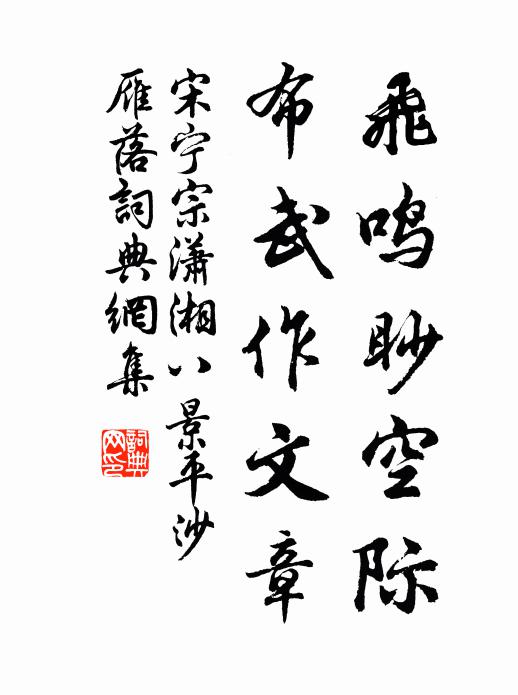 飛鳴眇空际
布武作文章
宋宁宗瀟湘八景平沙
雁落詞典網集
詞典网印